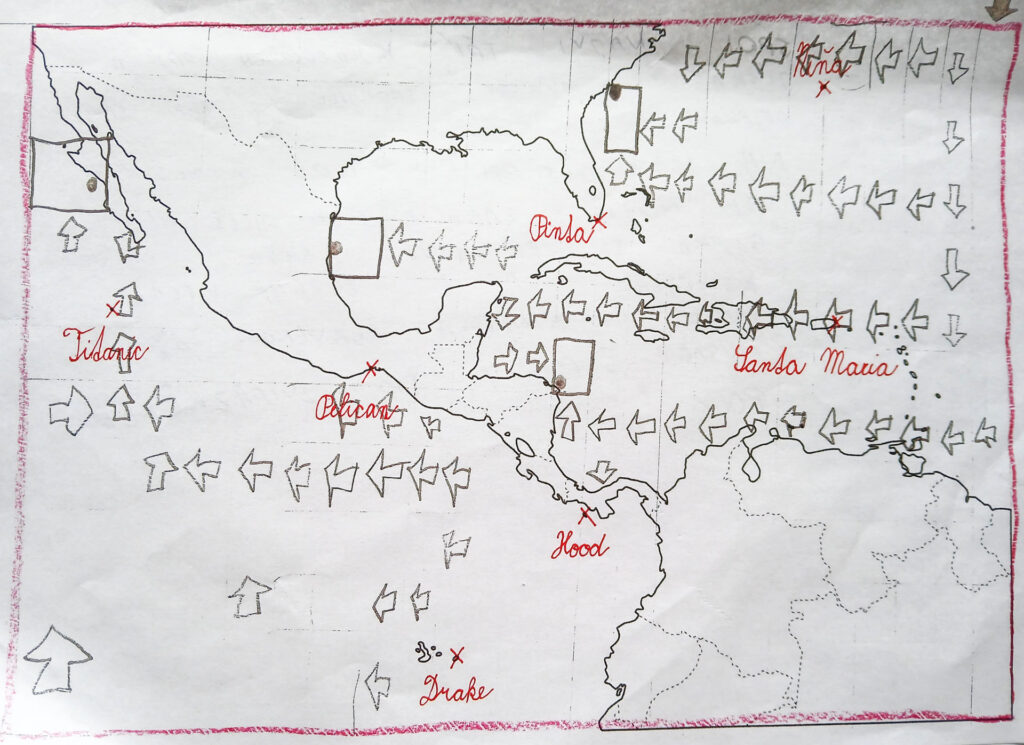 Niña
Pinta
Titanic
Santa Maria
Pelican
Hood
Drake